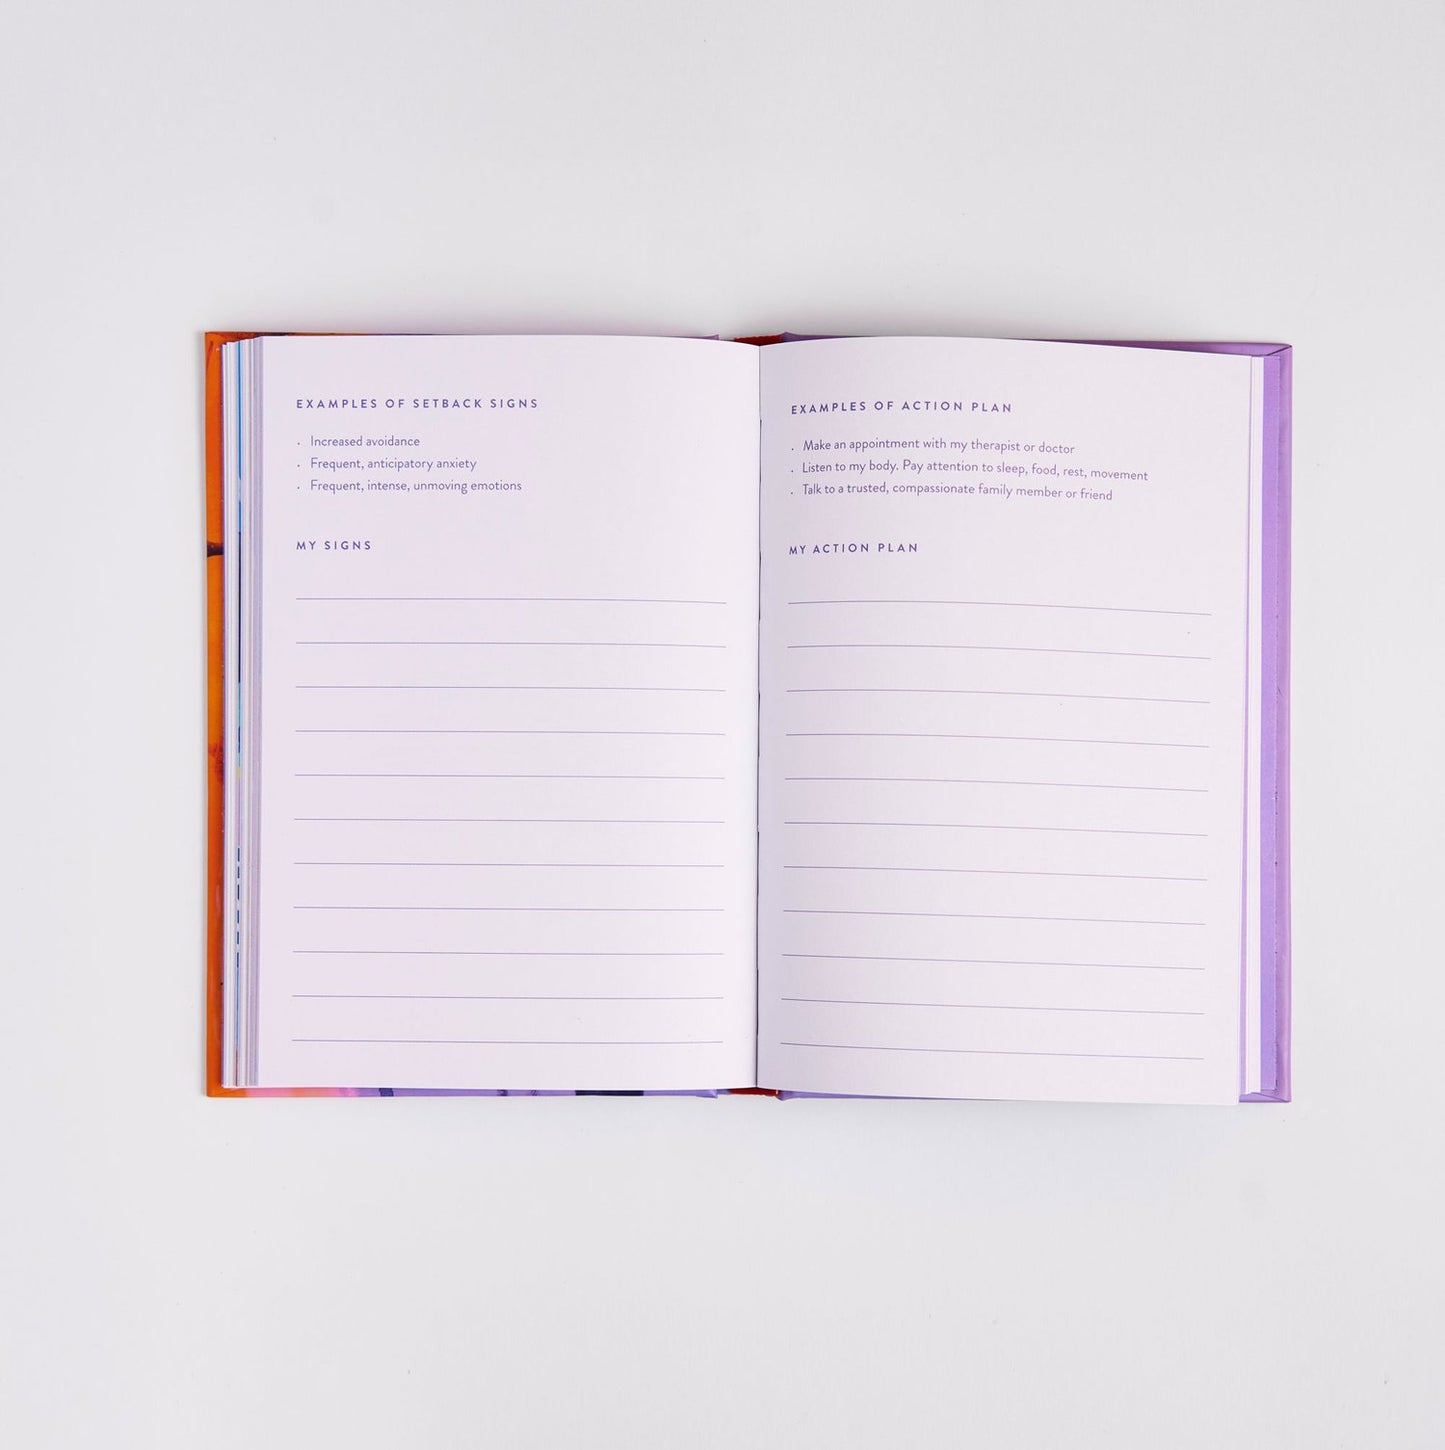 EXAMPLES OF SETBACK SIGNS
• Increased avoidance
• Frequent, anticipatory anxiety
• Frequent, intense, unmoving emotions
MY SIGNS
EXAMPLES OF ACTION PLAN
• Make an appointment with my therapist or doctor
• Listen to my body. Pay attention to sleep, food, rest, movement
• Talk to a trusted, compassionate family member or friend
MY ACTION PLAN